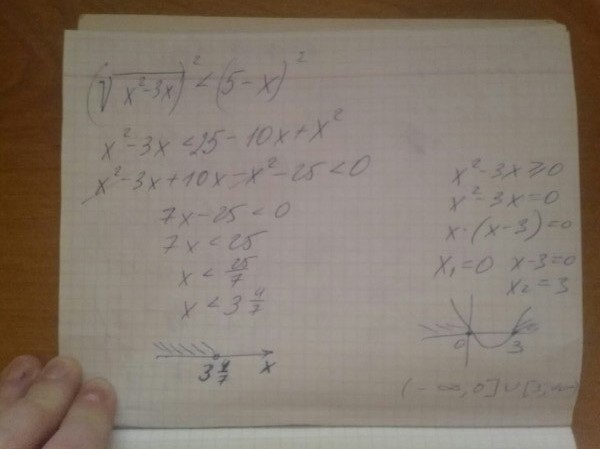 (√x²-3x)² < (5-x)²
x²-3x < 25-10x+x²
x²-3x+10x-x²-25<0
7x-25<0
7x<25
x < 25/7
x < 3 4/7
3 4/7 x
x²-3x≥0
x²-3x=0
x·(x-3)=0
x₁=0 x-3=0
x₂=3
0 3
(-∞,0]∪[3,∞)